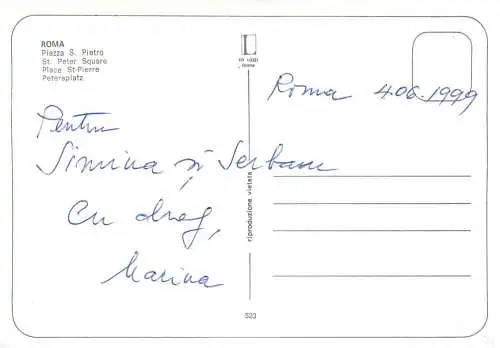 ROMA
Piazza S. Pietro
St. Peter Square
Place St-Pierre
Petersplatz
Roma 4.06.1999
Pentru
Simina și Serban
Cu drag,
Marina
riproduzione vietata
523